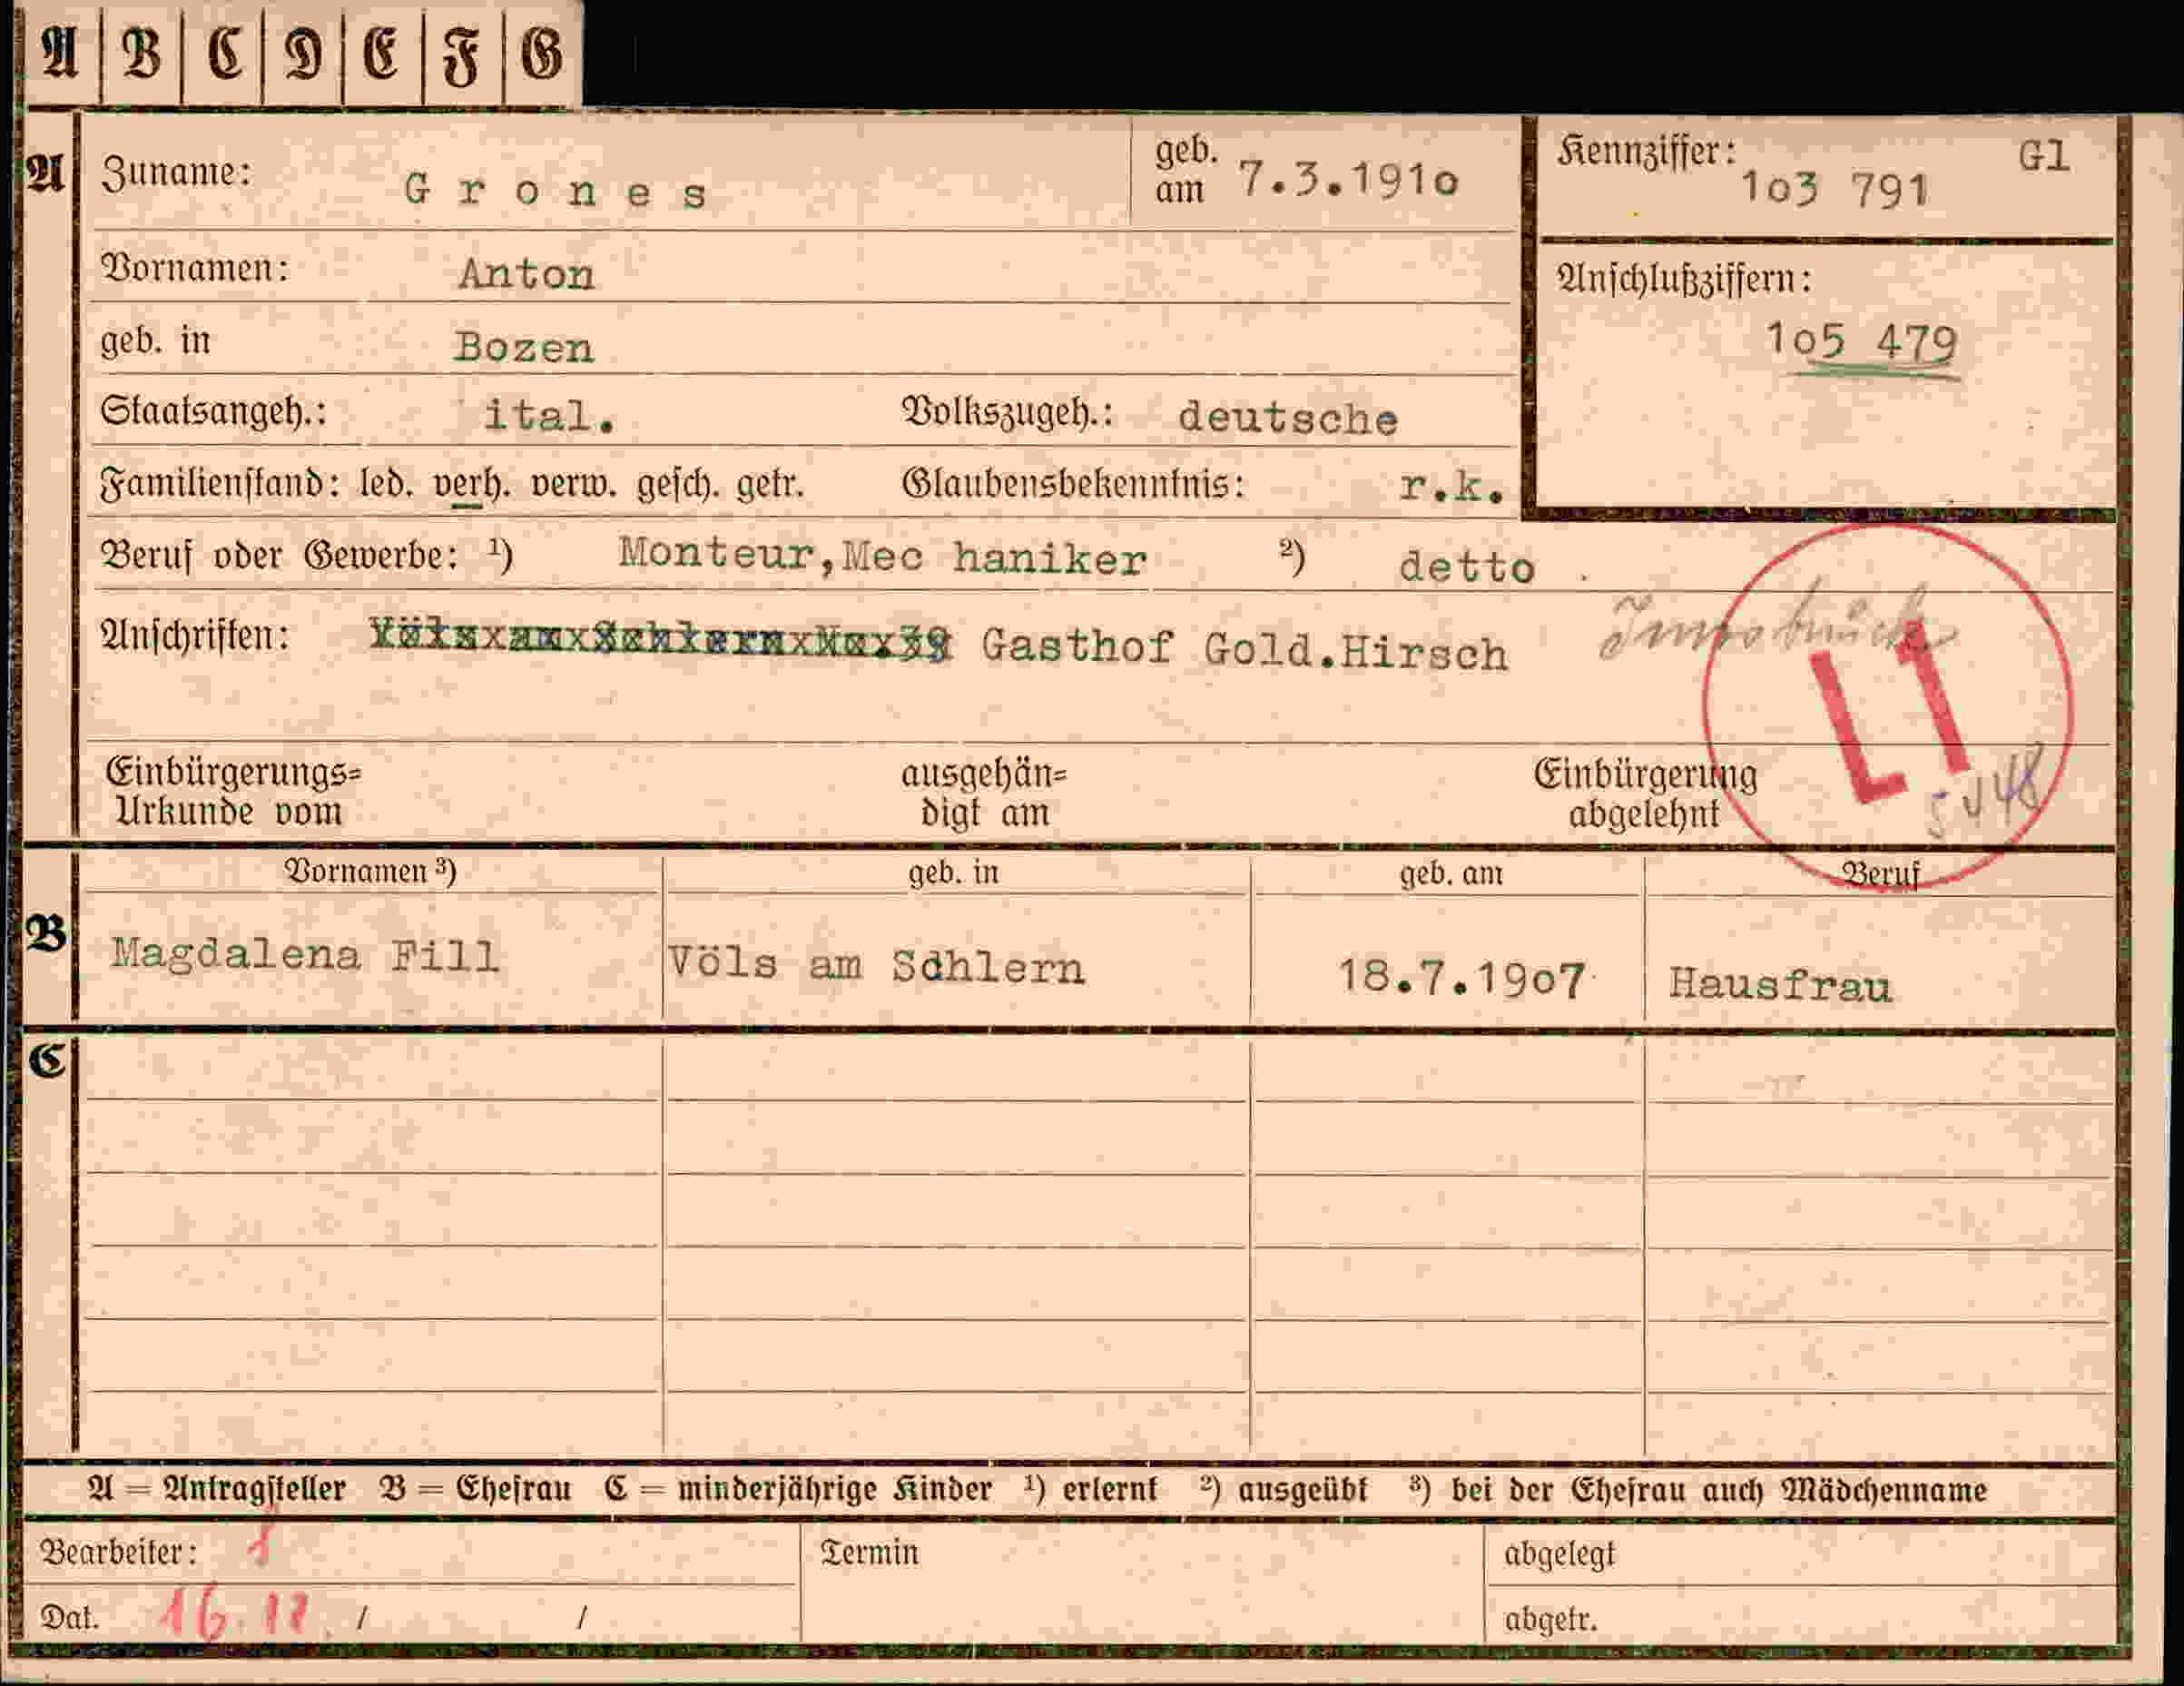 A B C D E F G
A Zuname: Grones geb. am 7.3.191o Kennziffer: 1o3 791 Gl
Vornamen: Anton Anschlußziffern:
geb. in Bozen 1o5 479
Staatsangeh.: ital. Volkszugeh.: deutsche
Familienstand: led. verh. verw. gesch. getr. Glaubensbekenntnis: r.k.
Beruf oder Gewerbe: ¹) Monteur,Mec haniker ²) detto
Anschriften: Gasthof Gold.Hirsch Innsbruck
L1
Einbürgerungs= ausgehän= Einbürgerung
Urkunde vom digt am abgelehnt
Vornamen ³) geb. in geb. am Beruf
B Magdalena Fill Völs am Schlern 18.7.19o7 Hausfrau
C
A = Antragsteller B = Ehefrau C = minderjährige Kinder ¹) erlernt ²) ausgeübt ³) bei der Ehefrau auch Mädchenname
Bearbeiter: 1 Termin abgelegt
Dat. / / abgetr.